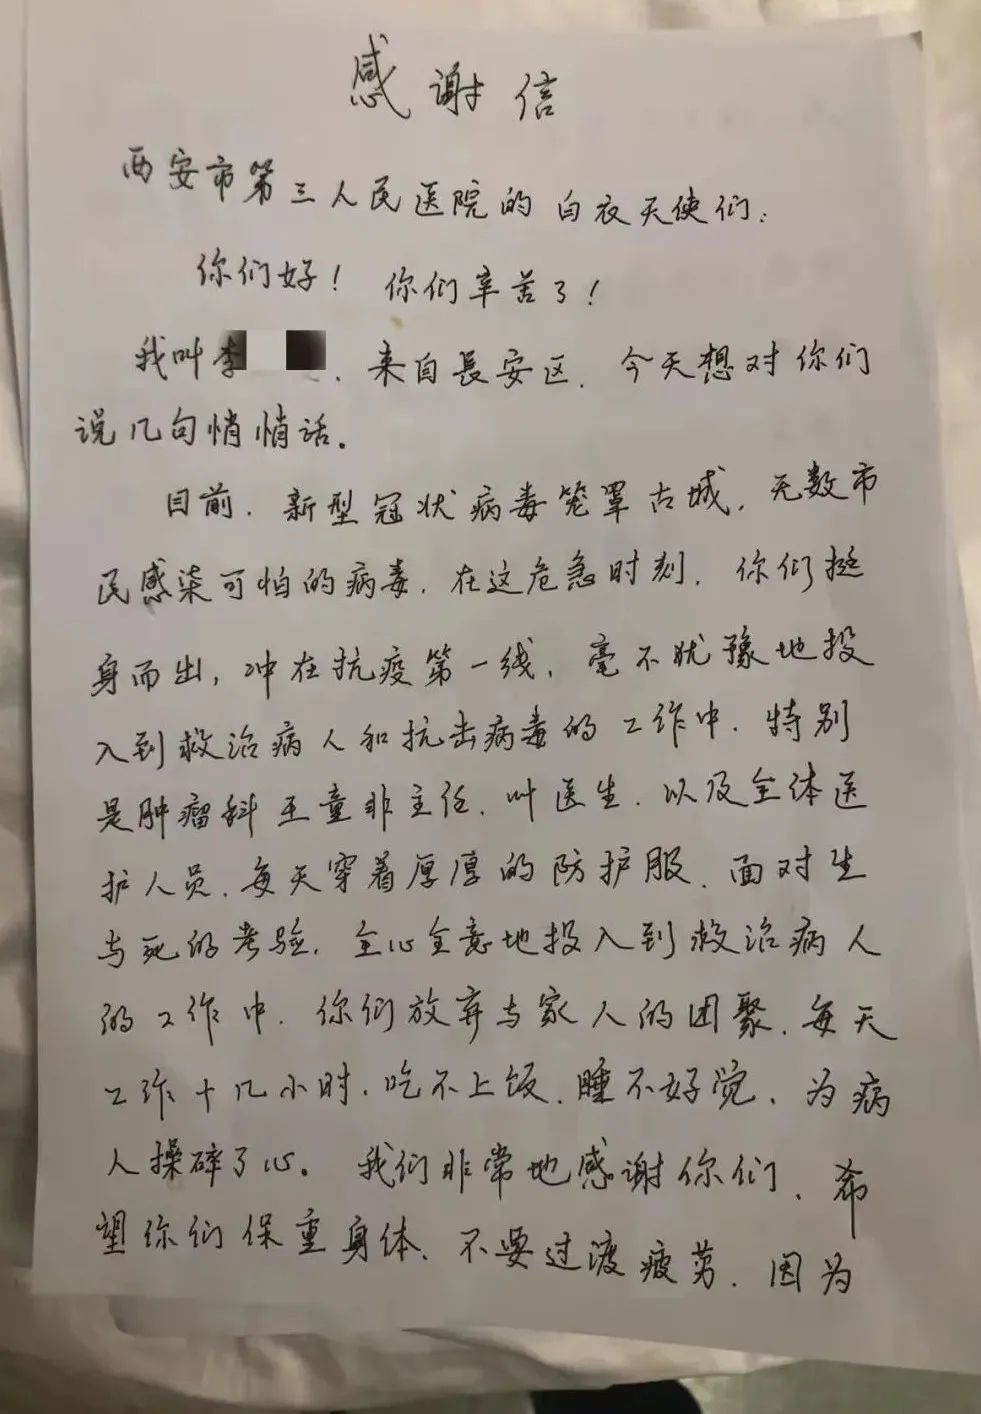 感谢信
西安市第三人民医院的白衣天使们:
你们好! 你们辛苦了!
我叫李 、来自長安区.今天想对你们
说几句悄悄话。
目前.新型冠状病毒笼罩古城,无数市
民感染可怕的病毒.在这危急时刻,你们挺
身而出,冲在抗疫第一线、毫不犹豫地投
入到救治病人和抗击病毒的工作中.特别
是肿瘤科王童非主任.叫医生.以及全体医
护人员.每天穿着厚厚的防护服、面对生
与死的考验.全心全意地投入到救治病人
的工作中.你们放弃与家人的团聚、每天
工作十几小时.吃不上饭、睡不好觉、为病
人操碎了心。我们非常地感谢你们、希
望你们保重身体、不要过渡疲劳.因为